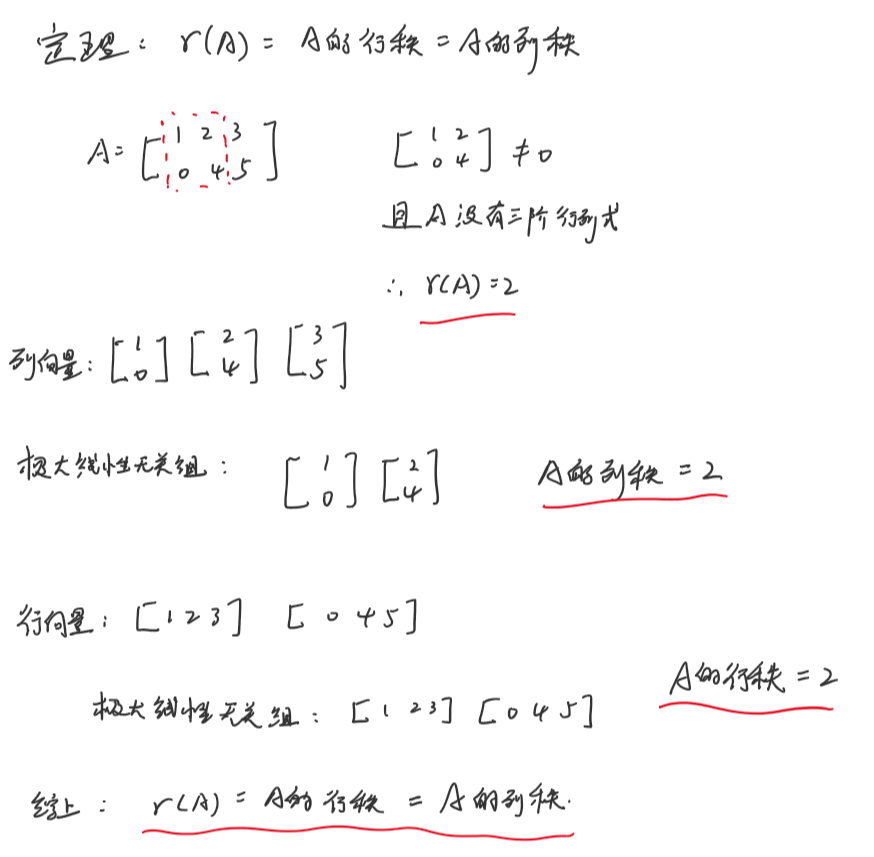 定理： r(A) = A的行秩 = A的列秩
A= [ 1 2 3
0 4 5 ]
[ 1 2
0 4 ] ≠ 0
且 A 没有三阶行列式
∴ r(A)=2
列向量： [ 1 0 ] [ 2 4 ] [ 3 5 ]
极大线性无关组： [ 1 0 ] [ 2 4 ] A的列秩 = 2
行向量： [ 1 2 3 ] [ 0 4 5 ]
A的行秩 = 2
极大线性无关组： [ 1 2 3 ] [ 0 4 5 ]
综上： r(A) = A的行秩 = A的列秩.